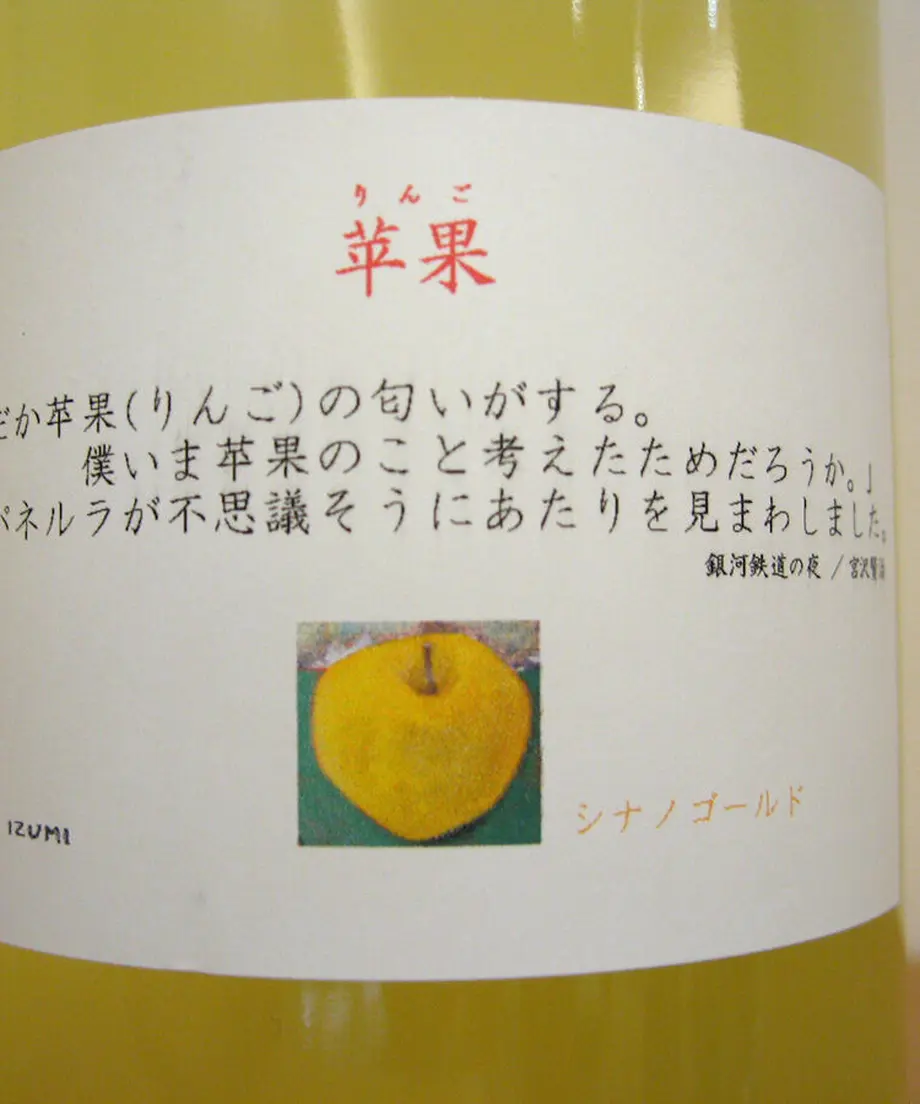 りんご
苹果
だか苹果(りんご)の匂いがする。
僕いま苹果のこと考えたためだろうか。」
パネルラが不思議そうにあたりを見まわしました。
銀河鉄道の夜 / 宮沢賢治
シナノゴールド
IZUMI